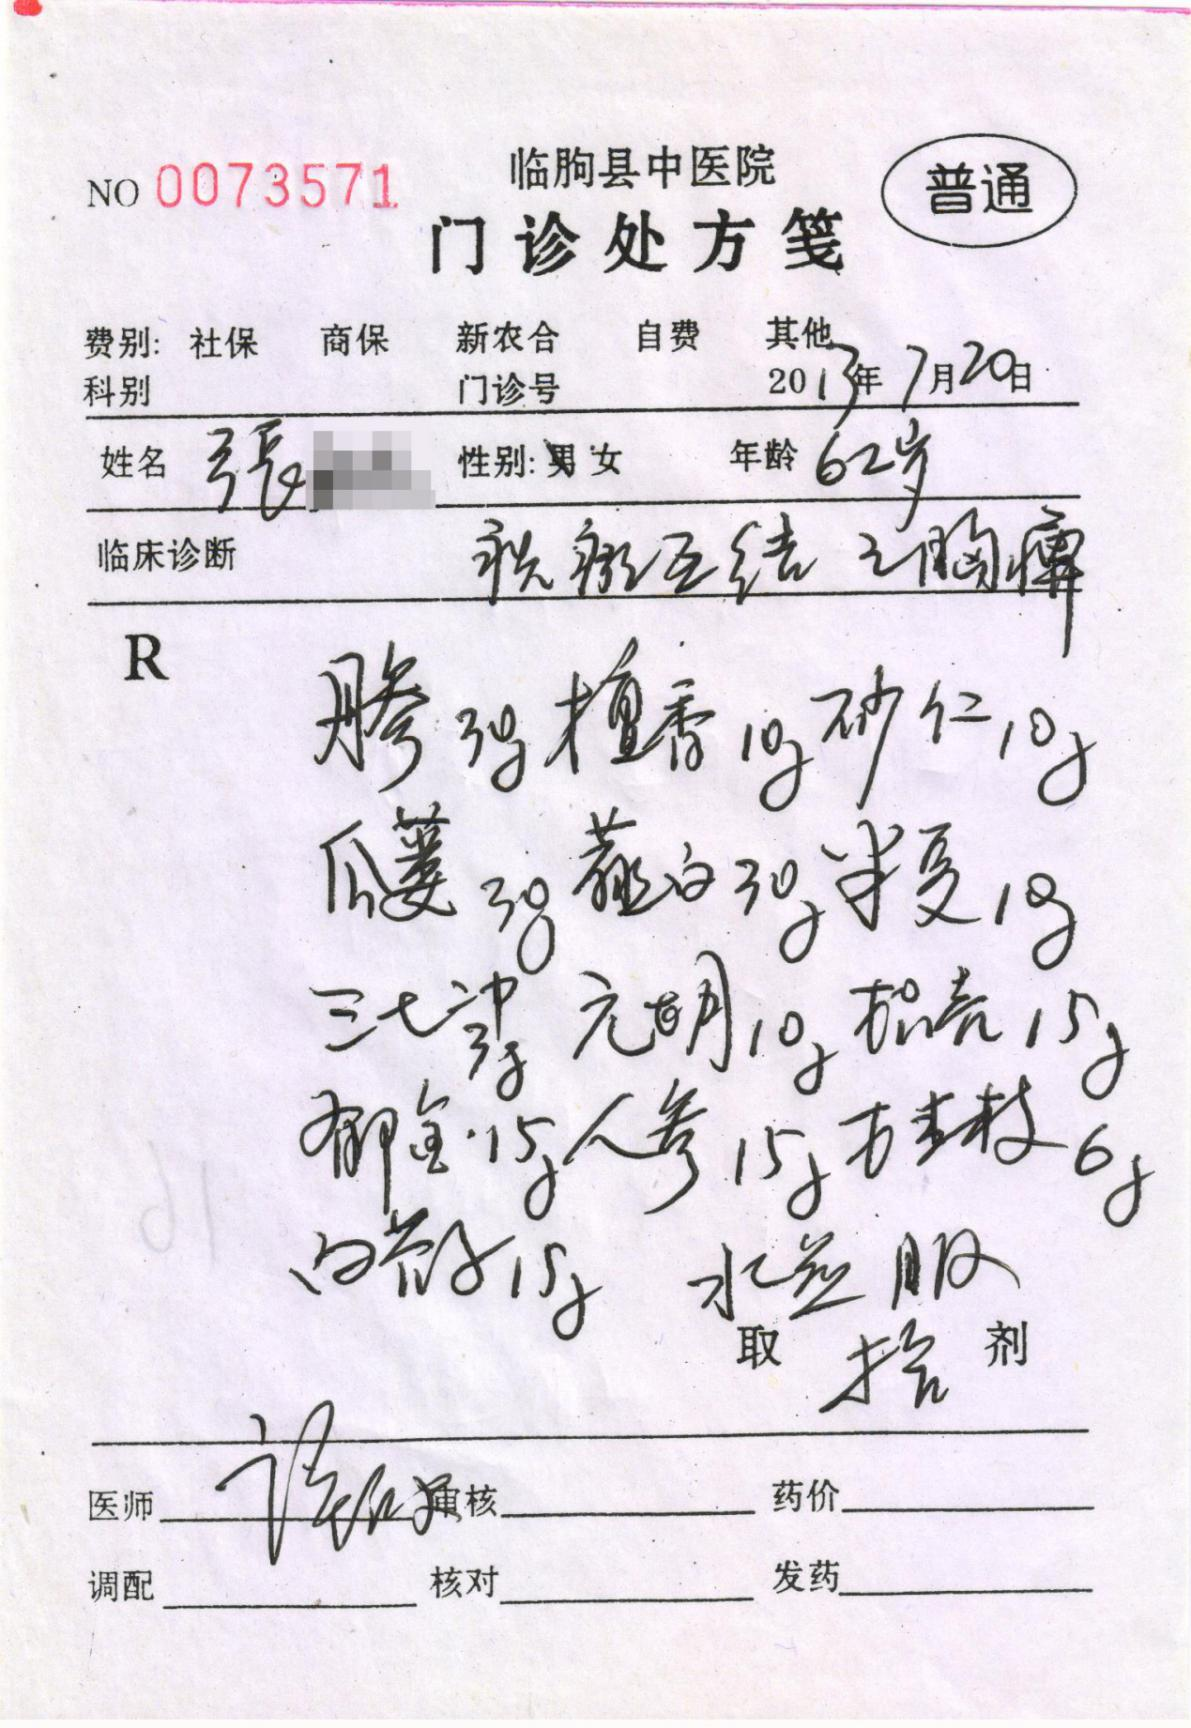 临朐县中医院
NO 0073571
普通
门诊处方笺
费别: 社保 商保 新农合 自费 其他
科别 门诊号 2013年7月20日
姓名 張 性别: 男 女 年龄 62岁
临床诊断 痰瘀互结之胸痹
R
丹参 30g 檀香 10g 砂仁 10g
瓜蒌 30g 薤白 30g 半夏 10g
三七冲 3g 元胡 10g 桔壳 15g
郁金 15g 人参 15g 桂枝 6g
白芥子 15g 水煎服
取 拾 剂
医师 审核 药价
调配 核对 发药